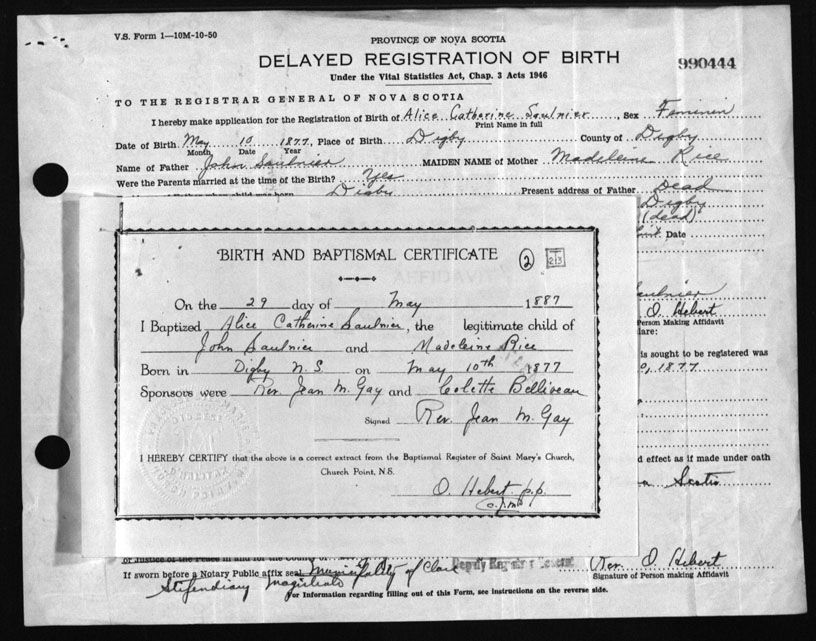 V.S. Form 1—10M-10-50
PROVINCE OF NOVA SCOTIA
DELAYED REGISTRATION OF BIRTH
990444
Under the Vital Statistics Act, Chap. 3 Acts 1946
TO THE REGISTRAR GENERAL OF NOVA SCOTIA
I hereby make application for the Registration of Birth of Alice Catherine Saulnier, Sex
Print Name in full
Date of Birth May 10 1877, Place of Birth Digby County of Digby
Month Date Year
Name of Father John Saulnier MAIDEN NAME of Mother Madeleine Rice
Were the Parents married at the time of the Birth? Yes
Digby Present address of Father Dead
Digby
(dead)
Date
BIRTH AND BAPTISMAL CERTIFICATE 2 213
On the 29 day of May 1887
I Baptized Alice Catherine Saulnier, the legitimate child of
John Saulnier and Madeleine Rice
Born in Digby N.S. on May 10th 1877
Sponsors were Rev. Jean M. Gay and Colette Belliveau
Signed Rev. Jean M. Gay
I HEREBY CERTIFY that the above is a correct extract from the Baptismal Register of Saint Mary's Church,
Church Point, N.S.
O. Hebert p.p.
O. Hebert
Person Making Affidavit
lare:
is sought to be registered was
1877
d effect as if made under oath
Scotia
or Justice of the Peace in and for the County of
If sworn before a Notary Public affix seal Municipality of Clare Rev. O. Hebert
Stipendiary Magistrate
Signature of Person making Affidavit
For Information regarding filling out of this Form, see instructions on the reverse side.